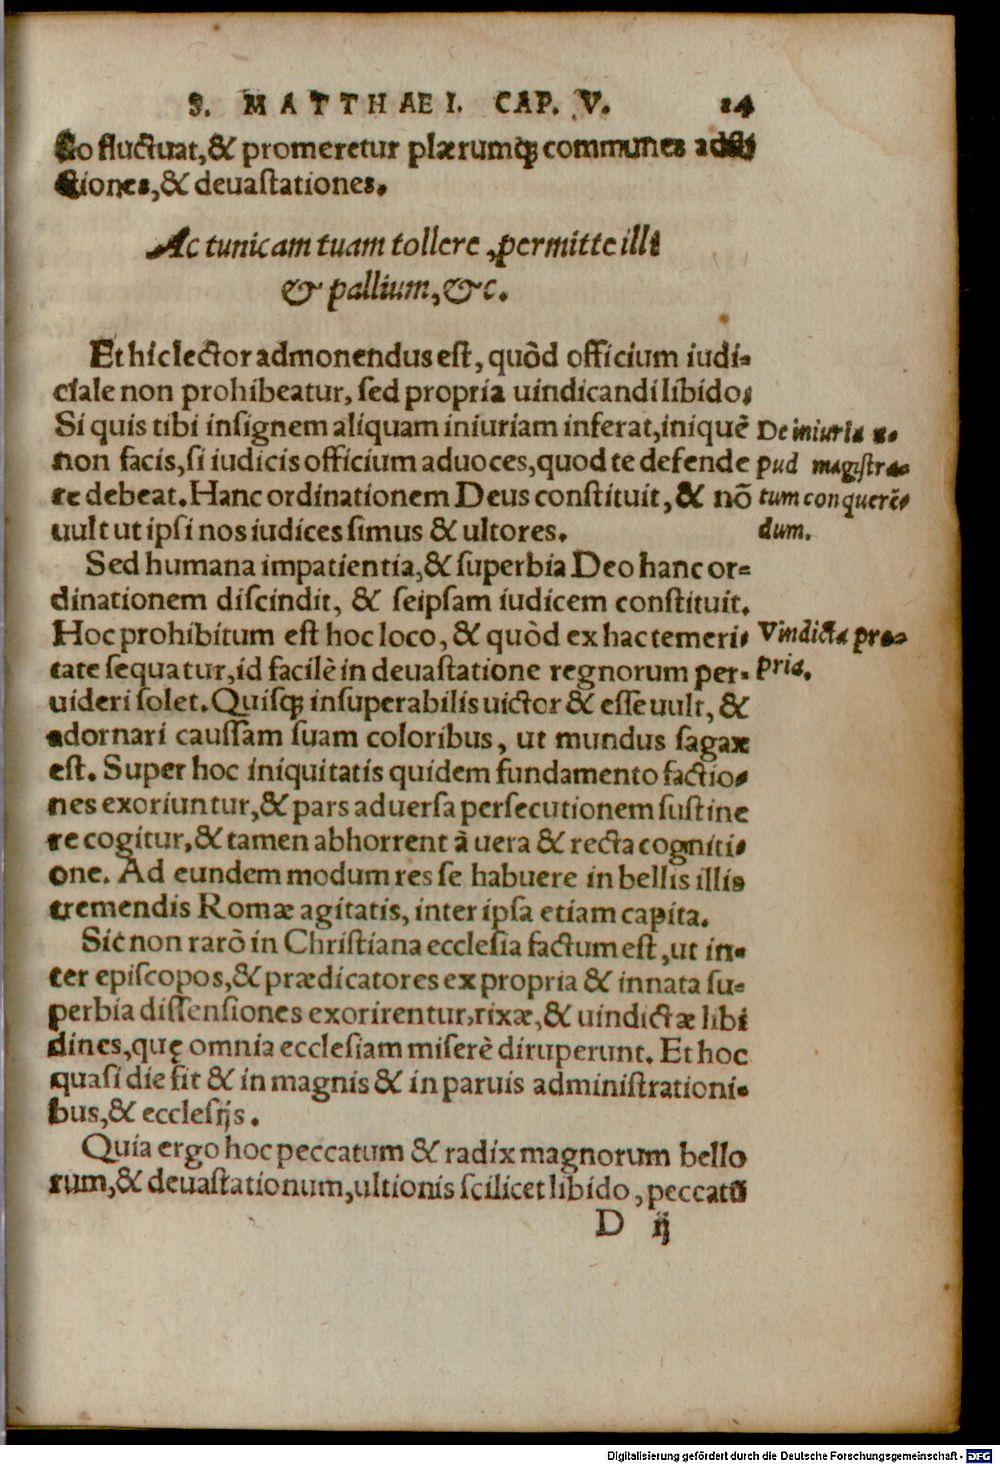 S. MATTHAEI. CAP. V. 24
Eo fluctuat,& promeretur plærumq; communes
ctiones,& deuastationes.
Ac tunicam tuam tollere, permitte illi
& pallium, &c.
Et hic lector admonendus est, quòd officium iudi-
ciale non prohibeatur, sed propria uindicandi libido;
Si quis tibi insignem aliquam iniuriam inferat, iniquè
non facis, si iudicis officium aduoces, quod te defende
re debeat. Hanc ordinationem Deus constituit, & nō
uult ut ipsi nos iudices simus & ultores.
De iniuria a-
pud magistra-
tum conquerē-
dum.
Sed humana impatientia,& superbia Deo hanc or-
dinationem discindit, & seipsam iudicem constituit.
Hoc prohibitum est hoc loco, & quòd ex hac temeri-
tate sequatur, id facilè in deuastatione regnorum per-
uideri solet. Quisq; insuperabilis uictor & esse uult, &
adornari caussam suam coloribus, ut mundus sagax
est. Super hoc iniquitatis quidem fundamento factio-
nes exoriuntur,& pars aduersa persecutionem sustine
re cogitur,& tamen abhorrent à uera & recta cogniti-
one. Ad eundem modum res se habuere in bellis illis
tremendis Romæ agitatis, inter ipsa etiam capita.
Vindicta pro-
pria.
Sic non rarò in Christiana ecclesia factum est, ut in-
ter episcopos,& prædicatores ex propria & innata su-
perbia dissensiones exorirentur, rixæ,& uindictæ libi
dines, quę omnia ecclesiam miserè diruperunt. Et hoc
quasi die fit & in magnis & in paruis administrationi-
bus,& ecclesijs.
Quia ergo hoc peccatum & radix magnorum bello
rum,& deuastationum, ultionis scilicet libido, peccatū
D ij
Digitalisierung gefördert durch die Deutsche Forschungsgemeinschaft - DFG